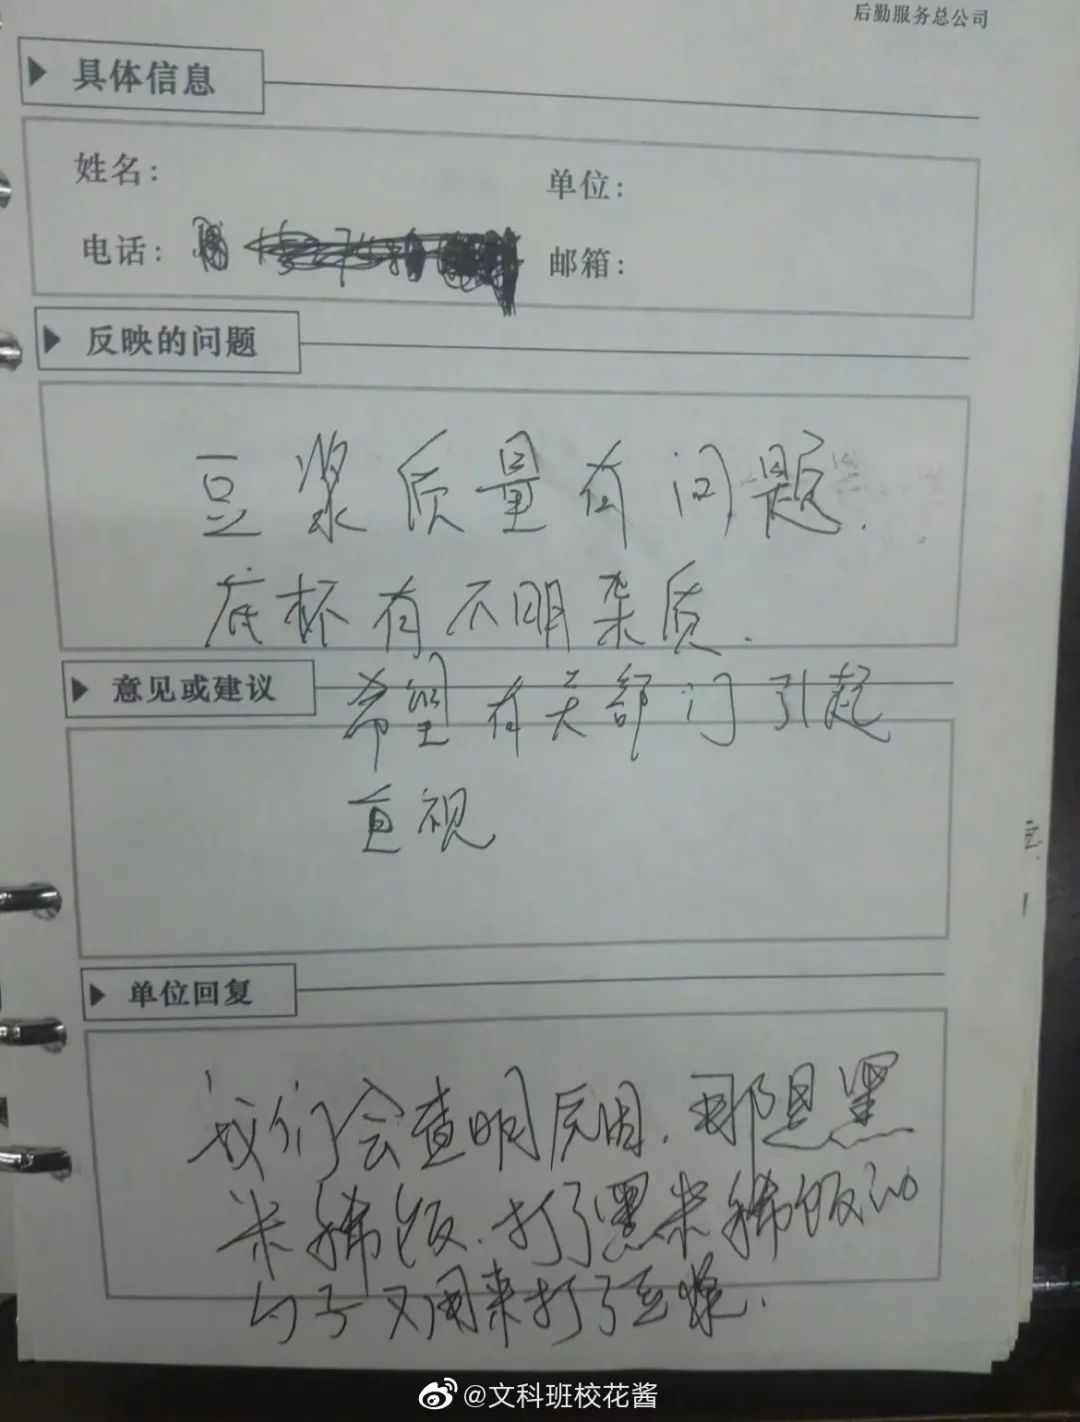 后勤服务总公司
具体信息
姓名：
单位：
电话：
邮箱：
反映的问题
豆浆质量有问题.
底杯有不明杂质.
意见或建议
希望有关部门引起
直视
单位回复
我们会查明原因.那是黑
米稀饭.打了黑米稀饭的
勺子又用来打了豆浆.
@文科班校花酱